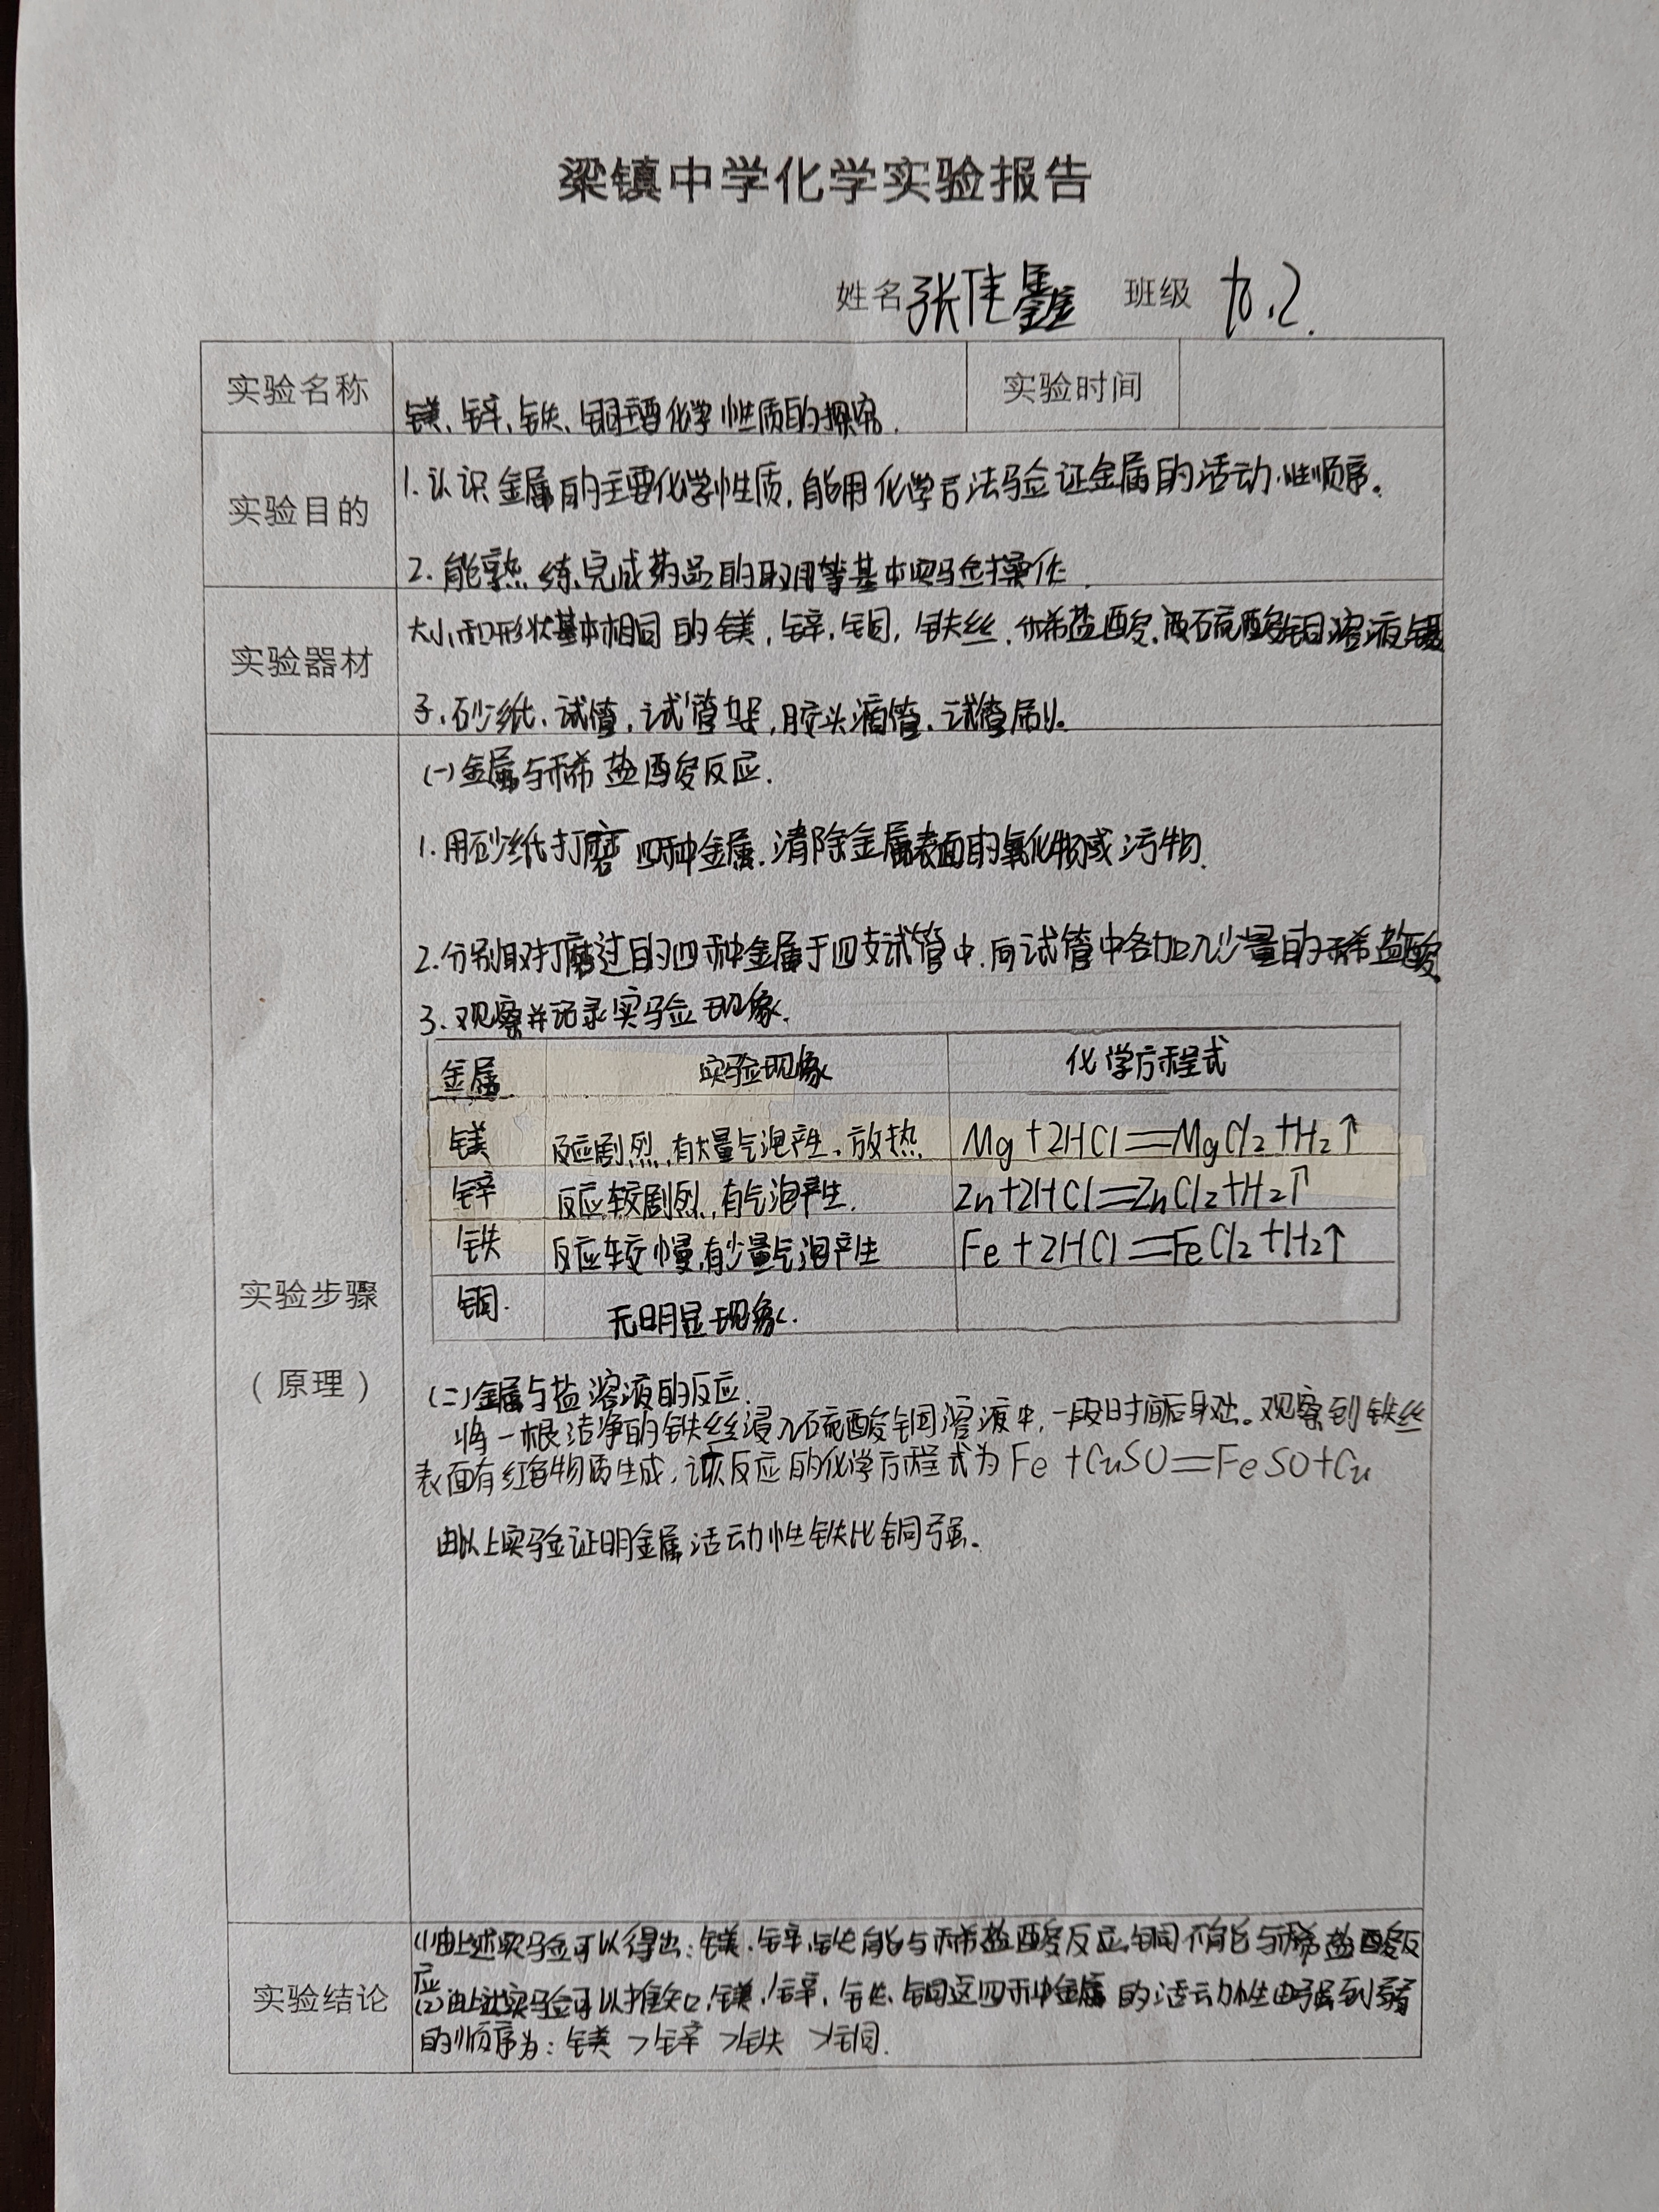 梁镇中学化学实验报告
姓名 张佳鑫 班级 九.2.
实验名称 镁、锌、铁、铜主要化学性质的探究. 实验时间
实验目的
1.认识金属的主要化学性质,能用化学方法验证金属的活动性顺序。
2.能熟练完成药品的取用等基本实验操作.
实验器材
大小和形状基本相同的镁,锌,铜,铁丝.稀盐酸.硫酸铜溶液镊
子、砂纸、试管,试管架,胶头滴管.试管刷。
实验步骤
(原理)
(一)金属与稀盐酸反应.
1.用砂纸打磨四种金属.清除金属表面的氧化物或污物.
2.分别取打磨过的四种金属于四支试管中.向试管中各加入少量的稀盐酸
3.观察并记录实验现象.
金属 实验现象 化学方程式
镁 反应剧烈,有大量气泡产生.放热 Mg+2HCl=MgCl2+H2↑
锌 反应较剧烈,有气泡产生. Zn+2HCl=ZnCl2+H2↑
铁 反应较慢,有少量气泡产生 Fe+2HCl=FeCl2+H2↑
铜. 无明显现象.
(二)金属与盐溶液的反应.
将一根洁净的铁丝浸入硫酸铜溶液中,一段时间后取出。观察到铁丝
表面有红色物质生成,该反应的化学方程式为Fe+CuSO=FeSO+Cu
由以上实验证明金属活动性铁比铜强。
实验结论
(1)由上述实验可以得出:镁.锌.铁能与稀盐酸反应,铜不能与稀盐酸反
应
(2)由上述实验可以推知,镁,锌,铁,铜这四种金属的活动性由强到弱
的顺序为:镁>锌>铁>铜.